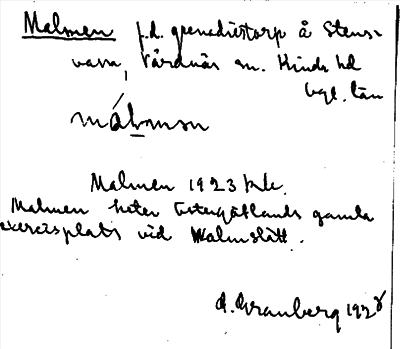 Malmen f.d. grenadiertorp å Stens-
vassa, Vårdnäs sn. Kinds hd
ögl. län
málmen
Malmen 1923 kk.
Malmen heter Östergötlands gamla
exercisplats vid Malmslätt.
A. Granberg 1928